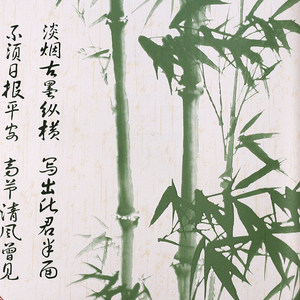 淡烟古墨纵横 写出此君半面
不须日报平安 高节清风曾见